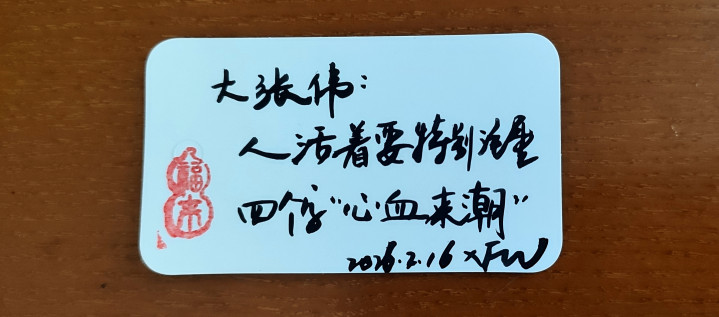 大张伟：
人活着要特别注重
四个字“心血来潮”
2026.2.16 XFW
福来